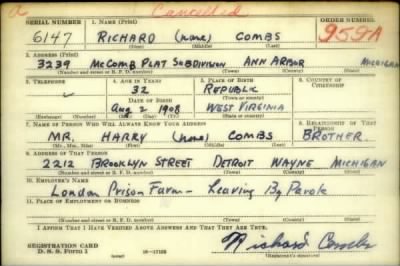 a Cancelled
SERIAL NUMBER 1. NAME (Print) ORDER NUMBER
6147 RICHARD (none) COMBS 959A
(First) (Middle) (Last)
2. ADDRESS (Print)
3239 McCOMB PLAT SUBDIVISION ANN ARBOR MICHIGAN
(Number and street or R. F. D. number) (Town) (County) (State)
3. TELEPHONE 4. AGE IN YEARS 5. PLACE OF BIRTH 6. COUNTRY OF CITIZENSHIP
32 REPUBLIC
DATE OF BIRTH (Town or county)
Aug. 2 1908 WEST VIRGINIA
(Exchange) (Number) (Mo.) (Day) (Yr.) (State or country)
7. NAME OF PERSON WHO WILL ALWAYS KNOW YOUR ADDRESS 8. RELATIONSHIP OF THAT PERSON
MR. HARRY (none) COMBS BROTHER
(Mr., Mrs., Miss) (First) (Middle) (Last)
9. ADDRESS OF THAT PERSON
2212 BROOKLYN STREET DETROIT WAYNE MICHIGAN
(Number and street or R. F. D. number) (Town) (County) (State)
10. EMPLOYER'S NAME
London Prison Farm - Leaving By Parole
11. PLACE OF EMPLOYMENT OR BUSINESS
(Number and street or R. F. D. number) (Town) (County) (State)
I AFFIRM THAT I HAVE VERIFIED ABOVE ANSWERS AND THAT THEY ARE TRUE.
REGISTRATION CARD
D. S. S. FORM 1 Richard Combs
(Registrant's signature)